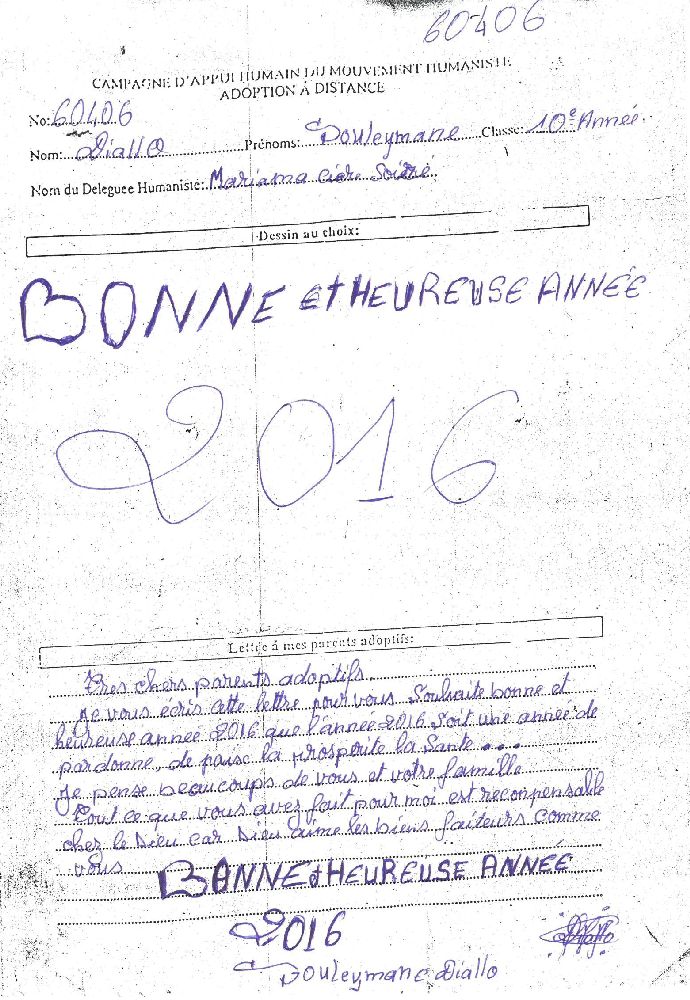 60406
CAMPAGNE D'APPUI HUMAIN DU MOUVEMENT HUMANISTE
ADOPTION À DISTANCE
No: 60406
Nom: Diallo Prénoms: Souleymane Classe: 10e Année.
Nom du Deleguee Humaniste: Mariama
Dessin au choix:
BONNE et HEUREUSE ANNÉE
2016
Lettre à mes parents adoptifs:
Tres chers parents adoptifs.
Je vous écris cette lettre pour vous Souhaite bonne et
heureuse année 2016 que l'année 2016 Soit une année de
pardonne, de paix la prosperite la Sante...
Je pense beaucoups de vous et votre famille
Tout ce que vous avez fait pour moi est reconpensable
chez le Dieu car Dieu aime les biens faiteurs Comme
vous
BONNE et HEUREUSE ANNÉE
2016
Diallo
Souleymane Diallo